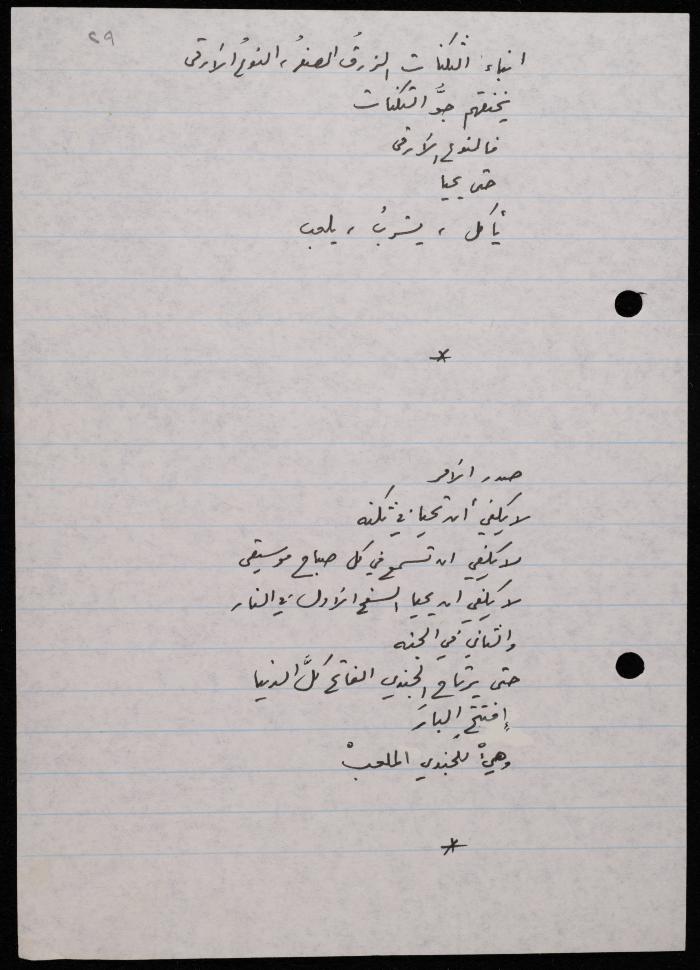 ٢٩
انباء الثكنات الزرقُ الصفرُ، النوعُ الأرقى
يخنقهم جوُّ الثكنات
فالنوع الأرقى
حتى يحيا
يأكل ، يشربُ ، يلعب
*
صدر الأمر
لا يكفي أن تحيا في ثكنه
لا يكفي ان تسمع في كل صباح موسيقى
لا يكفي ان يحيا السفح الأول في النار
والثاني في الجنه
حتى يرتاح الجندي الفاتح كلَّ الدنيا
إفتتحِ البارَ
وهيءْ للجندي الملعبْ
*